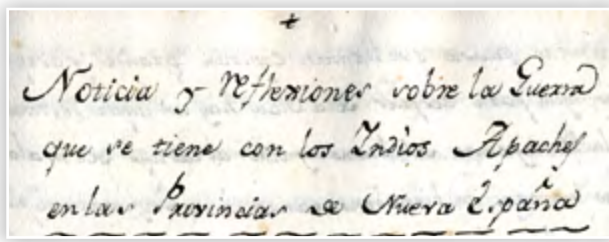 +
Noticia y reflexiones sobre la Guerra
que se tiene con los Indios Apaches
en las Provincias de Nueva España